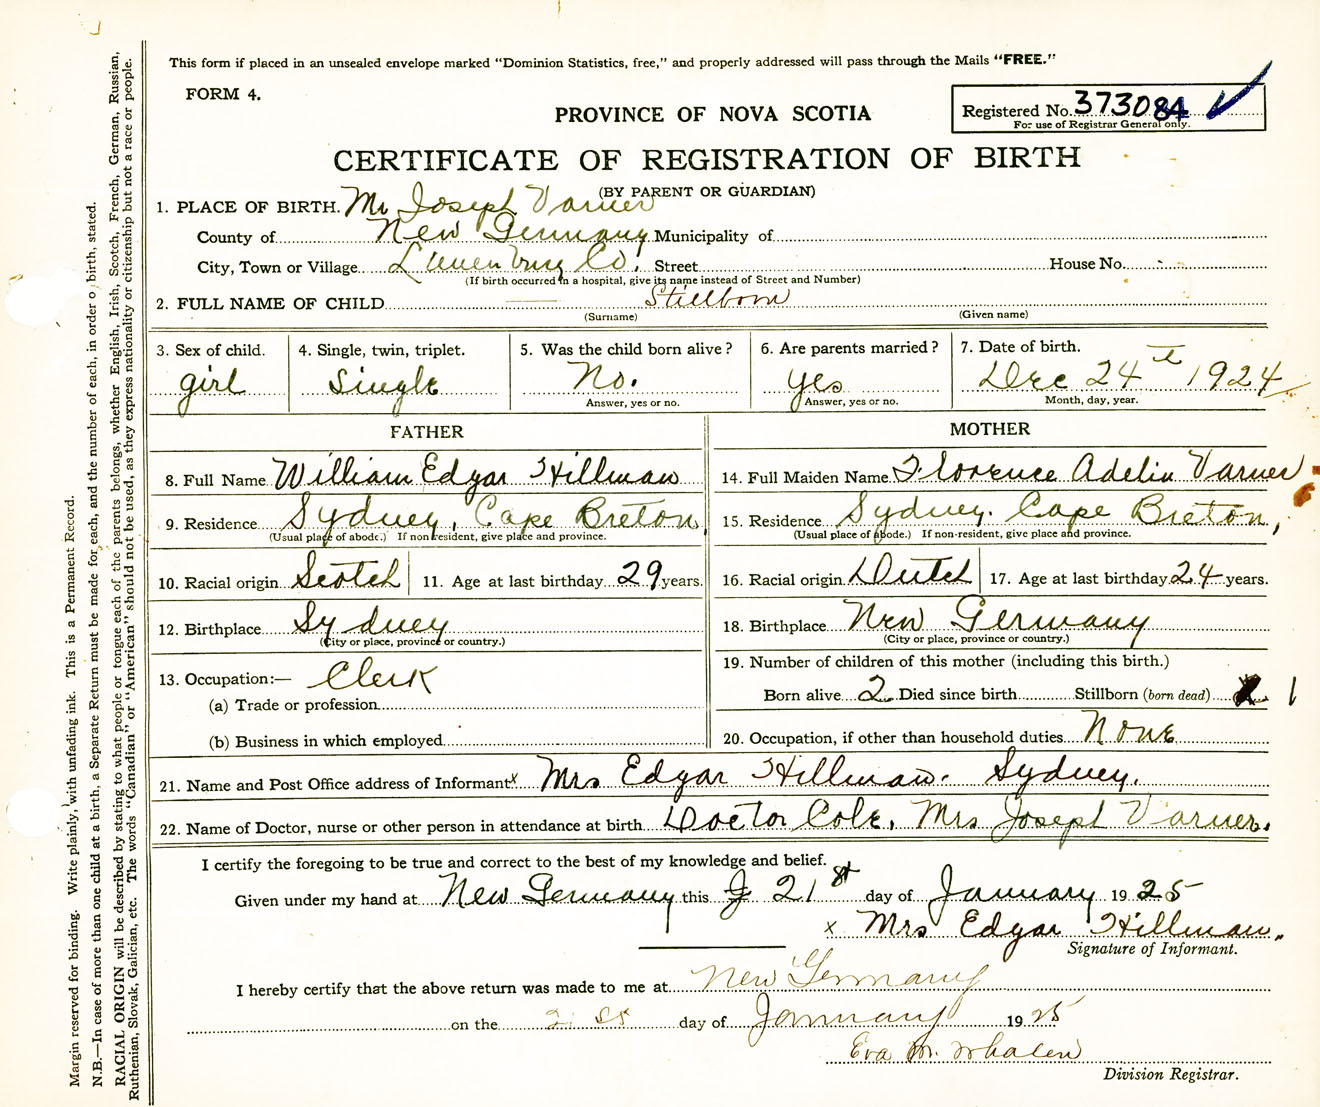 This form if placed in an unsealed envelope marked "Dominion Statistics, free," and properly addressed will pass through the Mails "FREE."
FORM 4.
PROVINCE OF NOVA SCOTIA
Registered No. 373084
For use of Registrar General only.
CERTIFICATE OF REGISTRATION OF BIRTH
(BY PARENT OR GUARDIAN)
1. PLACE OF BIRTH. Mr Joseph Varner
County of New Germany Municipality of
City, Town or Village Lunenburg Co. Street House No.
(If birth occurred in a hospital, give its name instead of Street and Number)
2. FULL NAME OF CHILD Stillborn
(Surname) (Given name)
3. Sex of child. 4. Single, twin, triplet. 5. Was the child born alive? 6. Are parents married? 7. Date of birth.
girl single No. yes Dec 24th 1924
Answer, yes or no. Answer, yes or no. Month, day, year.
FATHER MOTHER
8. Full Name William Edgar Hillman 14. Full Maiden Name Florence Adelia Varner
9. Residence Sydney, Cape Breton, 15. Residence Sydney. Cape Breton,
(Usual place of abode.) If non-resident, give place and province. (Usual place of abode.) If non-resident, give place and province.
10. Racial origin Scotch 11. Age at last birthday 29 years. 16. Racial origin Dutch 17. Age at last birthday 24 years.
12. Birthplace Sydney 18. Birthplace New Germany
(City or place, province or country.) (City or place, province or country.)
13. Occupation:— Clerk 19. Number of children of this mother (including this birth.)
(a) Trade or profession Born alive 2 Died since birth Stillborn (born dead) 1
(b) Business in which employed 20. Occupation, if other than household duties None
21. Name and Post Office address of Informant x Mrs Edgar Hillman. Sydney.
22. Name of Doctor, nurse or other person in attendance at birth Doctor Cole, Mrs Joseph Varner.
I certify the foregoing to be true and correct to the best of my knowledge and belief.
Given under my hand at New Germany this 21st day of January 1925
x Mrs Edgar Hillman.
Signature of Informant.
I hereby certify that the above return was made to me at New Germany
on the 21st day of January 1925
Eva M. Whalen
Division Registrar.
Margin reserved for binding. Write plainly, with unfading ink. This is a Permanent Record.
N.B.—In case of more than one child at a birth, a Separate Return must be made for each, and the number of each, in order of birth, stated.
RACIAL ORIGIN will be described by stating to what people or tongue each of the parents belongs, whether English, Irish, Scotch, French, German, Russian,
Ruthenian, Slovak, Galician, etc. The words "Canadian" or "American" should not be used, as they express nationality or citizenship but not a race or people.